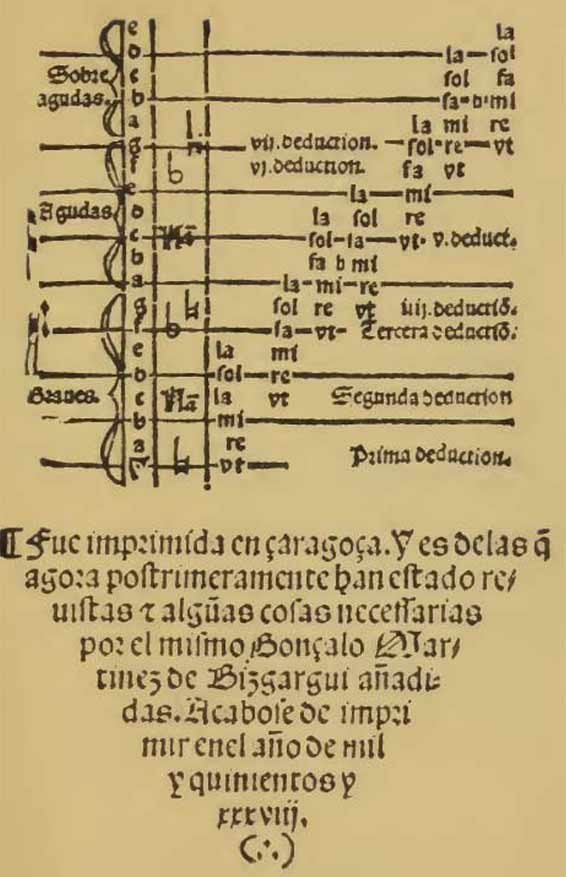 e la
d la sol
Sobre c sol fa
agudas. b fa b mi
a la mi re
g vij. deduction. sol re vt
f vj. deduction. fa vt
e la mi
Agudas d la sol re
c Na sol fa vt v. deduct.
b fa b mi
a la mi re
g sol re vt iiij. deductiõ.
f fa vt Tercera deductiõ.
e la mi
d sol re
Graues. c Na fa vt Segunda deduction
b mi
a re
Γ vt Prima deduction.
¶ Fue imprimida en çaragoça. Y es delas q̃
agora postrimeramente han estado re/
uistas ⁊ algũas cosas necessarias
por el mismo Gonçalo Mar/
tinez de Bizgargui añadi-
das. Acabose de impri
mir enel año de mil
y quinientos y
xxxviij.
(∴)